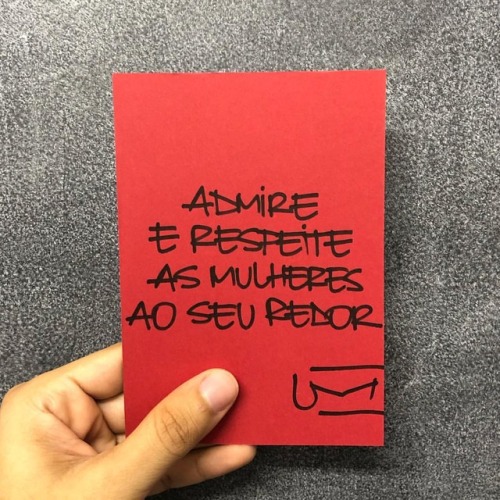 ADMIRE
E RESPEITE
AS MULHERES
AO SEU REDOR